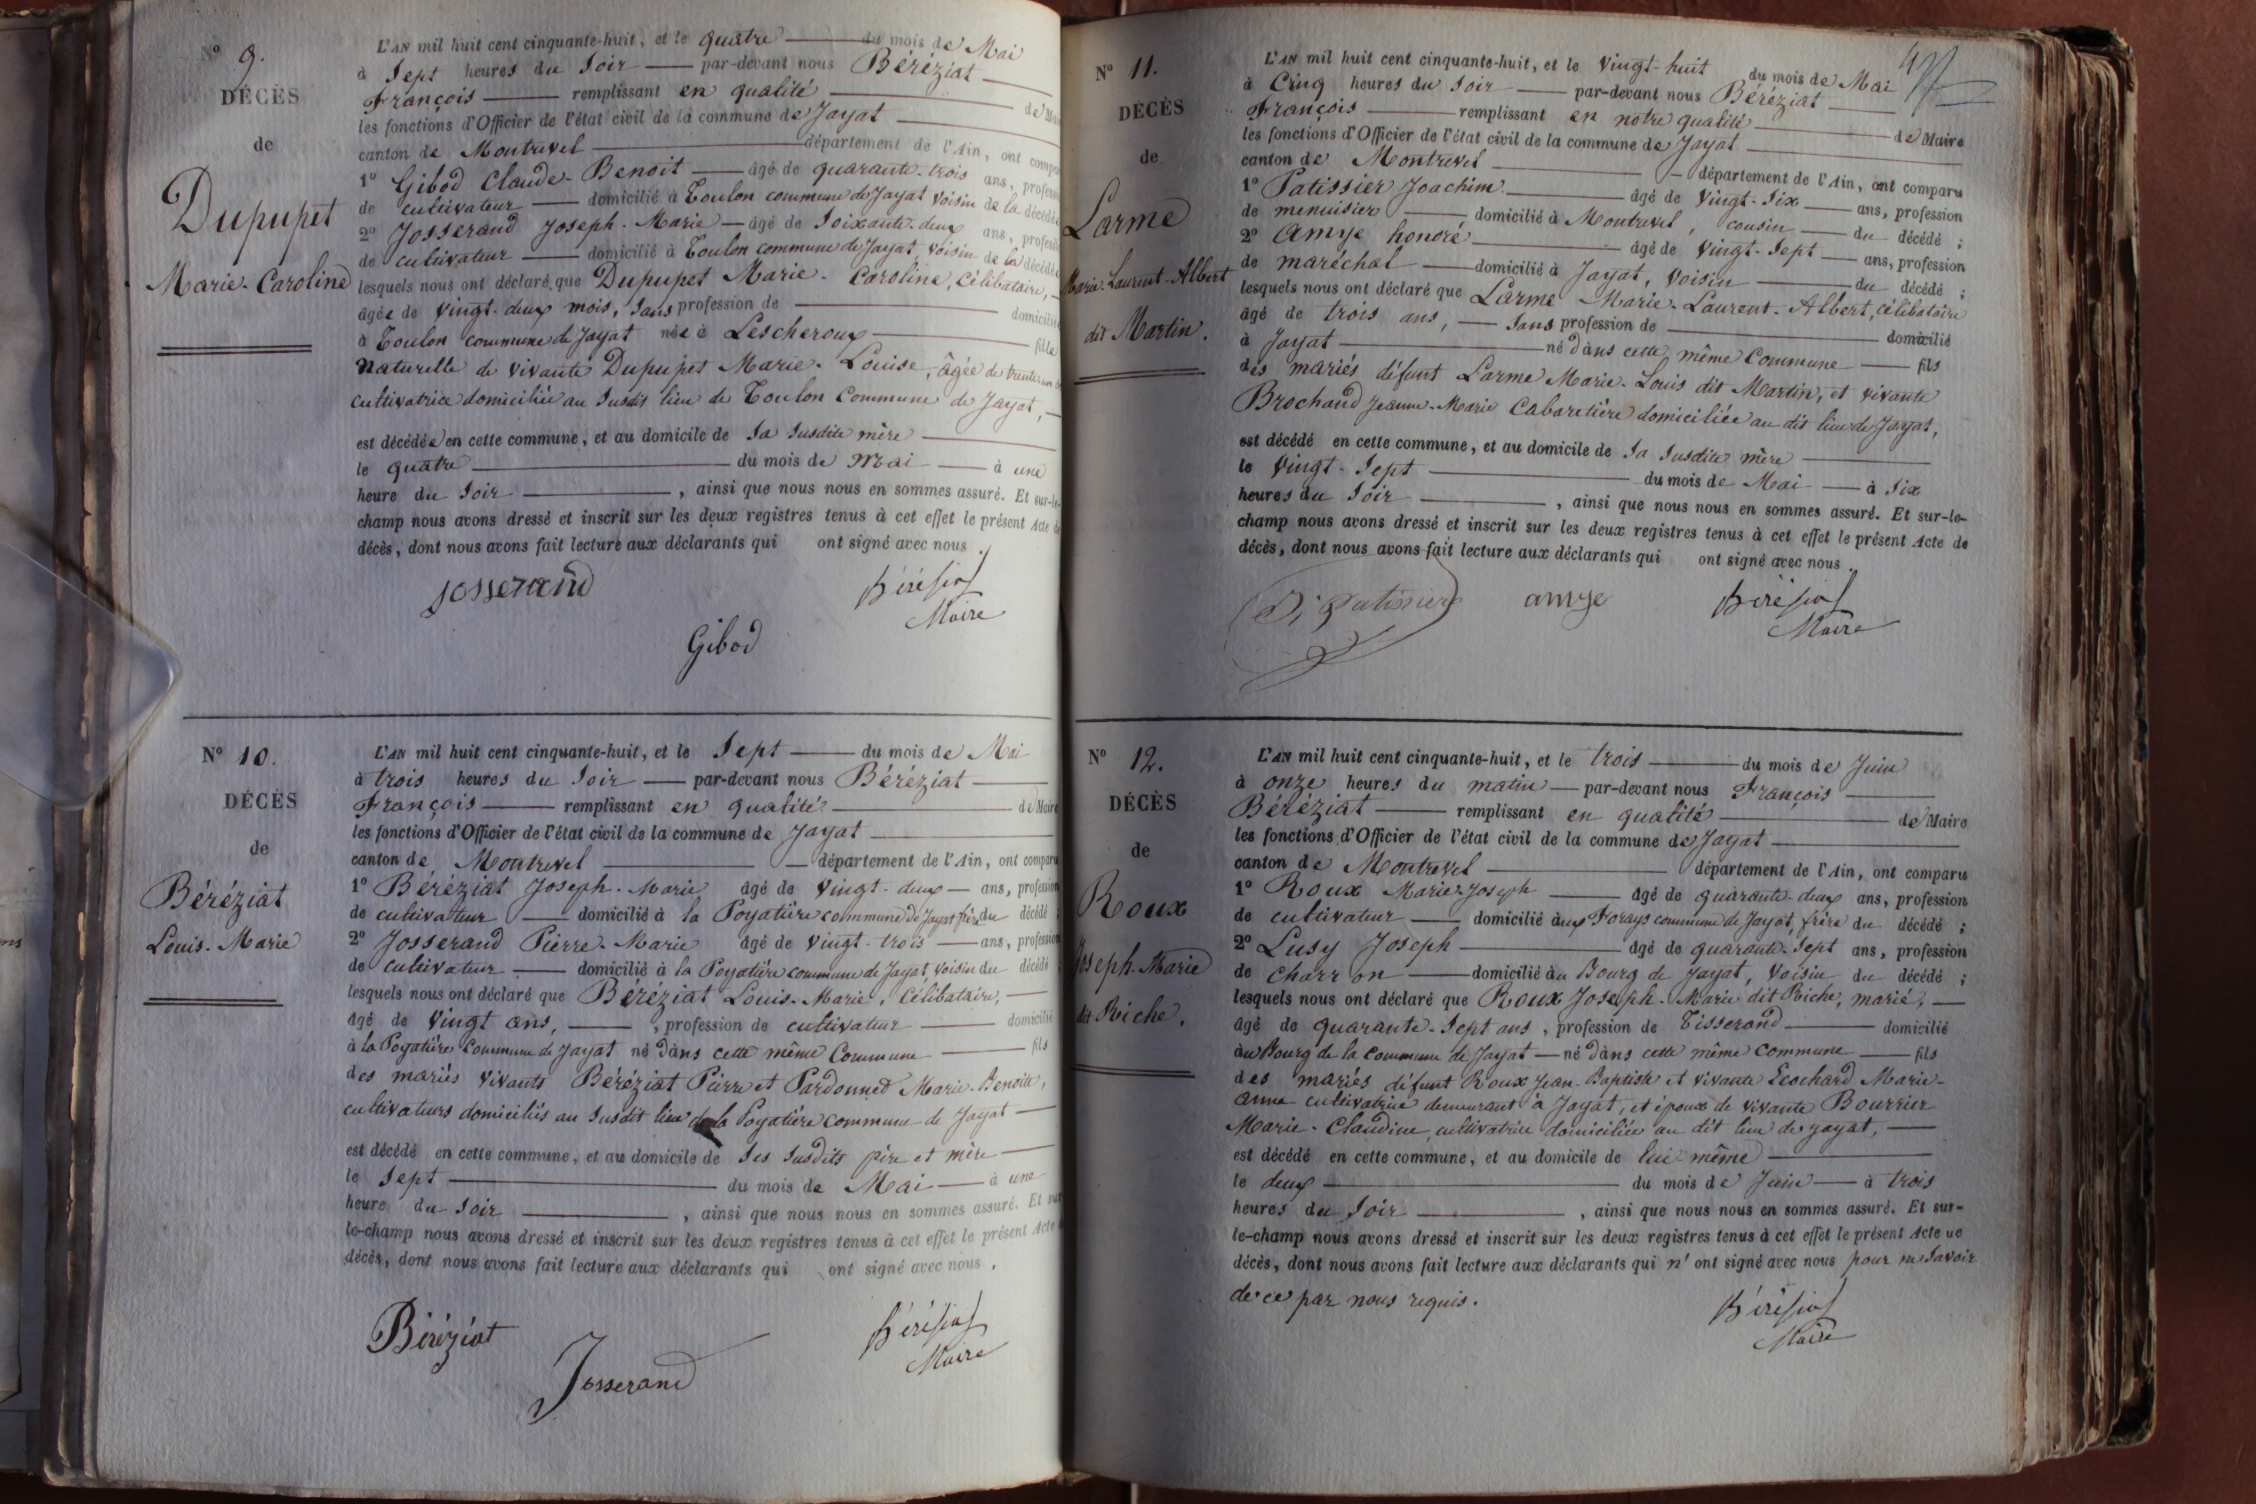 Nº 9.
DÉCÈS
de
Dupupet
Marie-Caroline
L'AN mil huit cent cinquante-huit, et le quatre du mois de Mai
à Sept heures du Soir par-devant nous Béréziat
François remplissant en qualité de
les fonctions d'Officier de l'état civil de la commune de Jayat
canton de Montrevel département de l'Ain, ont
1º Gibod Claude-Benoit âgé de quarante-trois ans,
de cultivateur domicilié à Toulon commune de Jayat voisin de la
2º Josserand Joseph-Marie âgé de Soixante-deux ans,
de cultivateur domicilié à Toulon commune de Jayat, voisin de la
lesquels nous ont déclaré que Dupupet Marie-Caroline, Célibataire,
âgée de vingt-deux mois, sans profession de
à Toulon commune de Jayat née à Lescheroux fille
naturelle de vivante Dupupet Marie-Louise, âgée de
cultivatrice domiciliée au susdit lieu de Toulon Commune de Jayat,
est décédée en cette commune, et au domicile de sa susdite mère
le quatre du mois de Mai à une
heure du Soir, ainsi que nous nous en sommes assuré. Et sur-le-
champ nous avons dressé et inscrit sur les deux registres tenus à cet effet le présent Acte de
décès, dont nous avons fait lecture aux déclarants qui ont signé avec nous.
Josserand
Béréziat
Maire
Gibod
Nº 10.
DÉCÈS
de
Béréziat
Louis-Marie
L'AN mil huit cent cinquante-huit, et le Sept du mois de Mai
à trois heures du Soir par-devant nous Béréziat
François remplissant en qualité de Maire
les fonctions d'Officier de l'état civil de la commune de Jayat
canton de Montrevel département de l'Ain, ont comparu
1º Béréziat Joseph-Marie âgé de vingt-deux ans, profession
de cultivateur domicilié à la Poyatière commune de Jayat frère du décédé
2º Josserand Pierre-Marie âgé de vingt-trois ans, profession
de cultivateur domicilié à la Poyatière commune de Jayat voisin du décédé
lesquels nous ont déclaré que Béréziat Louis-Marie, Célibataire,
âgé de vingt ans, profession de cultivateur domicilié
à la Poyatière Commune de Jayat né dans cette même Commune fils
des mariés vivants Béréziat Pierre et Pardonnet Marie-Benoite,
cultivateurs domiciliés au susdit lieu de la Poyatière commune de Jayat
est décédé en cette commune, et au domicile de ses susdits père et mère
le Sept du mois de Mai à une
heure du Soir, ainsi que nous nous en sommes assuré. Et sur
le-champ nous avons dressé et inscrit sur les deux registres tenus à cet effet le présent Acte
décès, dont nous avons fait lecture aux déclarants qui ont signé avec nous.
Béréziat
Josserand
Béréziat
Maire
Nº 11.
DÉCÈS
de
Larme
Marie-Laurent-Albert
dit Martin.
L'AN mil huit cent cinquante-huit, et le vingt-huit du mois de Mai
à Cinq heures du Soir par-devant nous Béréziat
François remplissant en notre qualité de Maire
les fonctions d'Officier de l'état civil de la commune de Jayat
canton de Montrevel département de l'Ain, ont comparu
1º Patissier Joachim âgé de vingt-six ans, profession
de menuisier domicilié à Montrevel, cousin du décédé;
2º Amye honoré âgé de vingt-sept ans, profession
de maréchal domicilié à Jayat, voisin du décédé;
lesquels nous ont déclaré que Larme Marie-Laurent-Albert, célibataire
âgé de trois ans, sans profession de domicilié
à Jayat né dans cette même Commune fils
des mariés défunt Larme Marie-Louis dit Martin, et vivante
Brochand Jeanne-Marie Cabaretière domiciliée au dit lieu de Jayat,
est décédé en cette commune, et au domicile de sa susdite mère
le vingt-sept du mois de Mai à six
heures du Soir, ainsi que nous nous en sommes assuré. Et sur-le-
champ nous avons dressé et inscrit sur les deux registres tenus à cet effet le présent Acte de
décès, dont nous avons fait lecture aux déclarants qui ont signé avec nous.
Patissier
amye
Béréziat
Maire
Nº 12.
DÉCÈS
de
Roux
Joseph-Marie
dit Riche.
L'AN mil huit cent cinquante-huit, et le trois du mois de Juin
à onze heures du matin par-devant nous François
Béréziat remplissant en qualité de Maire
les fonctions d'Officier de l'état civil de la commune de Jayat
canton de Montrevel département de l'Ain, ont comparu
1º Roux Marie-Joseph âgé de quarante-deux ans, profession
de cultivateur domicilié aux Forays commune de Jayat, frère du décédé;
2º Lusy Joseph âgé de quarante-sept ans, profession
de charron domicilié au Bourg de Jayat, voisin du décédé;
lesquels nous ont déclaré que Roux Joseph-Marie dit Riche, marié,
âgé de quarante-sept ans, profession de Tisserand domicilié
au Bourg de la commune de Jayat né dans cette même commune fils
des mariés défunt Roux Jean-Baptiste et vivante Leochard Marie-
anne cultivatrice demeurant à Jayat, et époux de vivante Bourrier
Marie-Claudine, cultivatrice domiciliée au dit lieu de yayat,
est décédé en cette commune, et au domicile de lui même
le deux du mois de Juin à trois
heures du Soir, ainsi que nous nous en sommes assuré. Et sur-
le-champ nous avons dressé et inscrit sur les deux registres tenus à cet effet le présent Acte de
décès, dont nous avons fait lecture aux déclarants qui n'ont signé avec nous pour ne savoir
de ce par nous requis.
Béréziat
Maire